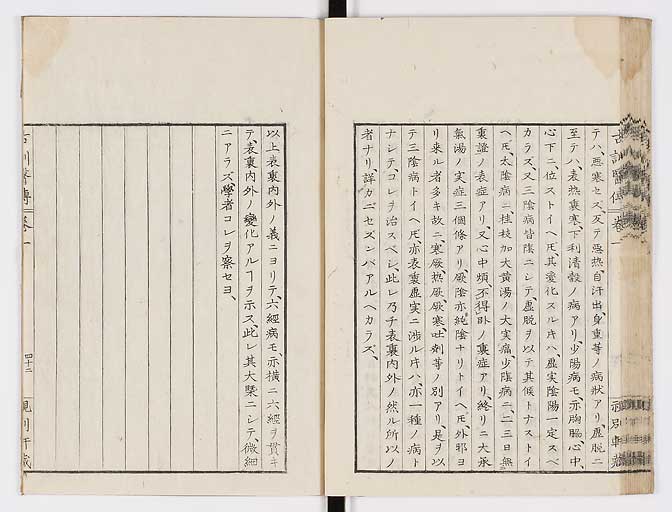 テハ、悪寒セズ、反テ悪熱、自汗出、身重等ノ病状アリ、虚脱ニ
至テハ、表熱裏寒、下利清穀ノ病アリ、少陽病モ、亦胸脇、心中、
心下ニ、位ストイヘ𪜈、其変化スル𪜈ハ、虚実陰陽一定スベ
カラズ、又三陰病皆陰ニシテ、虚脱ヲ以テ其候トナストイ
ヘ𪜈、太陰病ニ、桂枝加大黄湯ノ大実痛、少陰病ニ、二三日無
裏證ノ表症アリ、又心中煩、不得臥ノ裏症アリ、終リニ大承
氣湯ノ実症三個條アリ、厥陰亦純陰ナリトイヘ𪜈、外邪ヨ
リ来ル者多キ故ニ、寒厥、熱厥、厥寒、吐剤等ノ別アリ、是ヲ以
テ三陰病トイヘ𪜈亦表裏虚実ニ渉ル𪜈ハ、亦一種ノ病ト
ナシテ、コレヲ治スベシ、此レ乃チ表裏内外ノ然ル所以ノ
者ナリ、詳カニセズンバアルヘカラズ、
以上表裏内外ノ義ニヨリテ、六經病モ、亦横ニ六經ヲ貫キ
テ、表裏内外ノ變化アルヿヲ示ス、此レ其大槩ニシテ、微細
ニアラズ、學者コレヲ察セヨ、
古訓醫傳 卷一
四十二